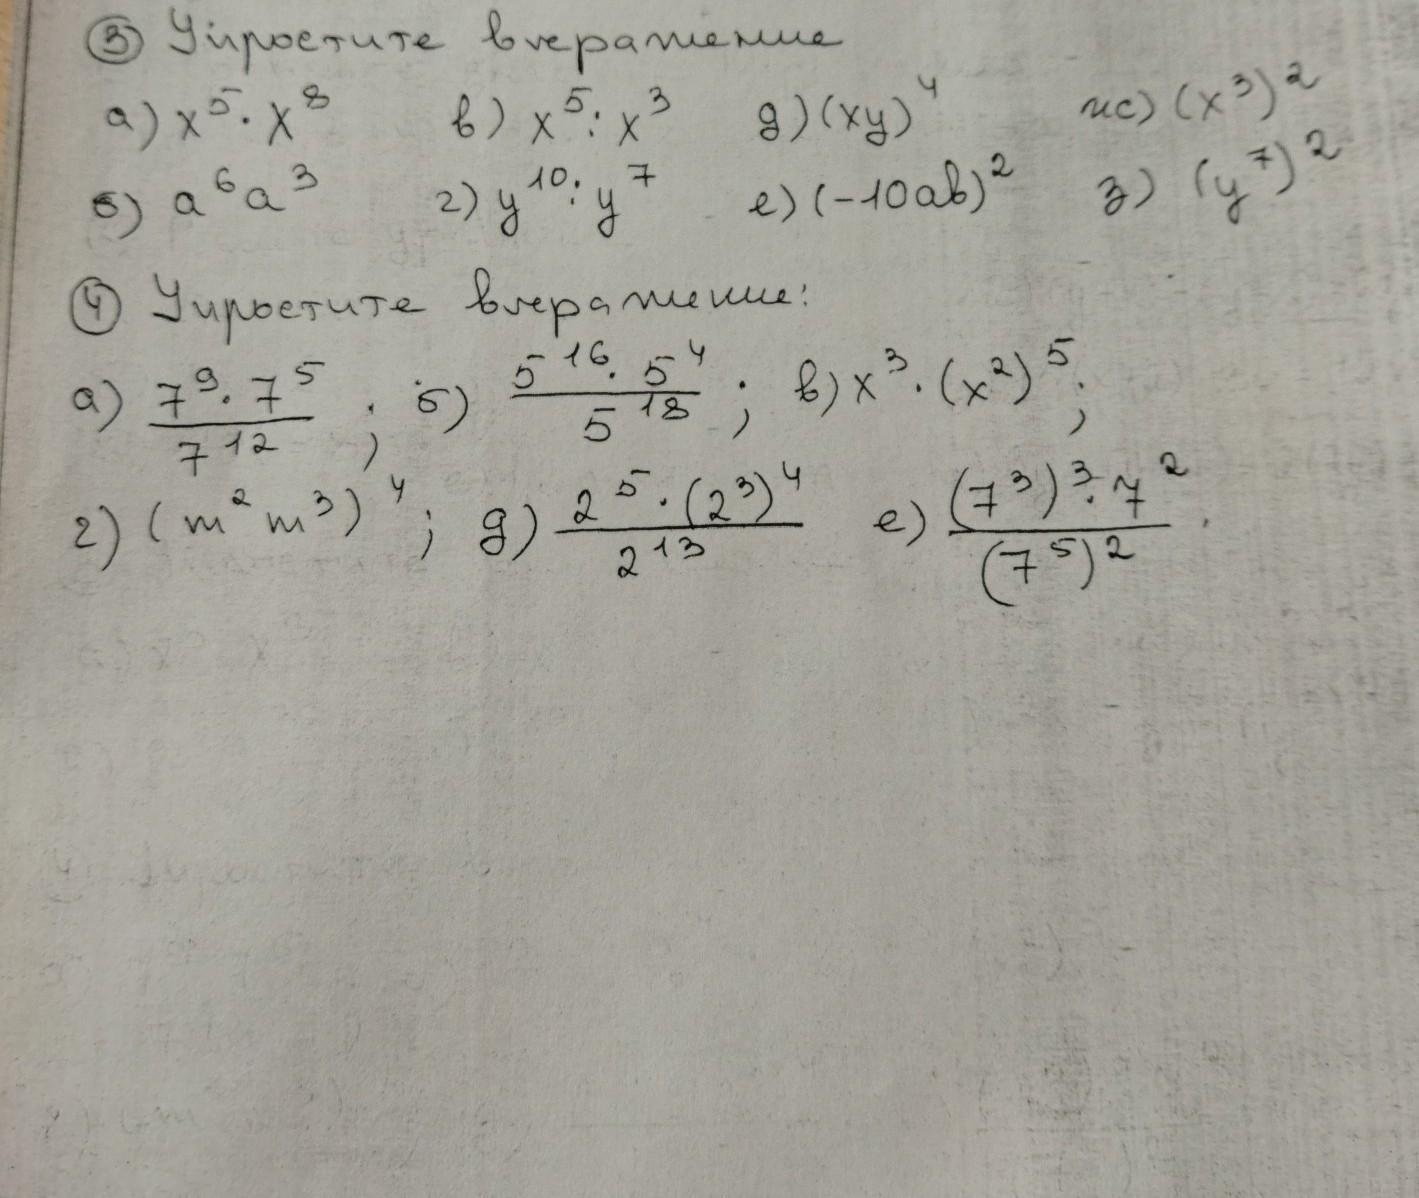 ③ Упростите выражение
а) x⁵ · x⁸ в) x⁵ : x³ д) (xy)⁴ ж) (x³)²
б) a⁶a³ г) y¹⁰ : y⁷ е) (-10ab)² з) (y⁷)²
④ Упростите выражение:
а) \frac{7⁹ · 7⁵}{7¹²} ; б) \frac{5¹⁶ · 5⁴}{5¹⁸} ; в) x³ · (x²)⁵ ;
г) (m²m³)⁴ ; д) \frac{2⁵ · (2³)⁴}{2¹³} е) \frac{(7³)³ · 7²}{(7⁵)²} .